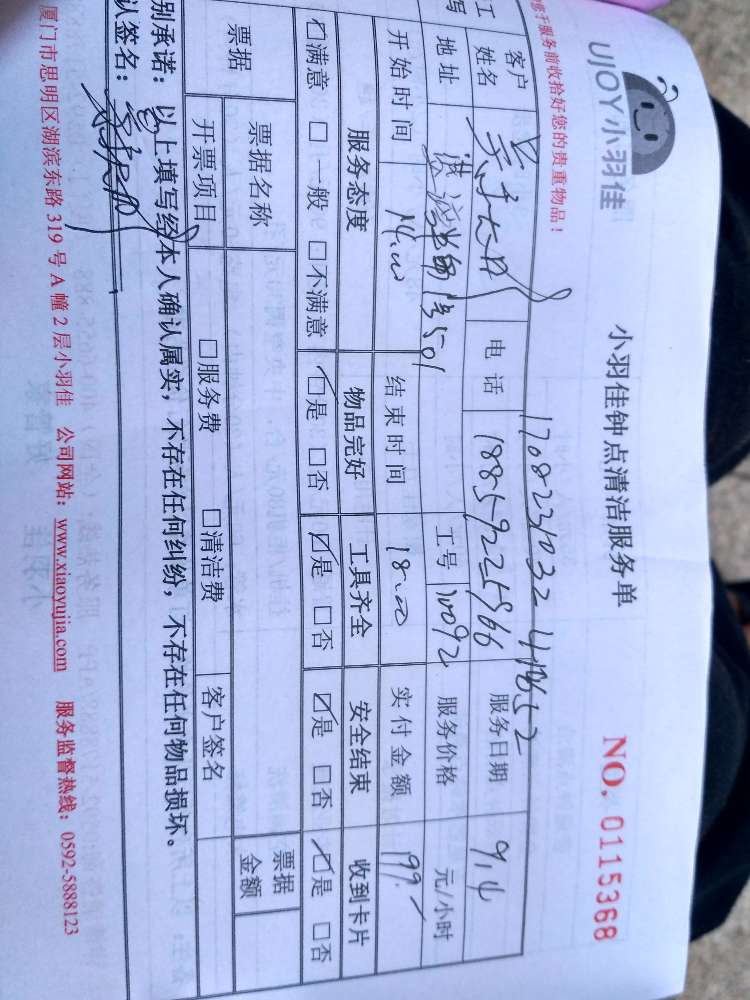 UJOY小羽佳
小羽佳钟点清洁服务单
NO. 0115368
服务前收拾好您的贵重物品！
客户
姓名
电话 18859225966
服务日期 9.4
地址
工号
服务价格 元/小时
开始时间 14.00
结束时间 18.00
实付金额 199.
服务态度 物品完好 工具齐全 安全结束 收到卡片
☑满意 □一般 □不满意 ☑是 □否 ☑是 □否 ☑是 □否 ☑是 □否
票据 票据名称 票据金额
开票项目 □服务费 □清洁费 客户签名
别承诺：以上填写经本人确认属实，不存在任何纠纷，不存在任何物品损坏。
认签名：
厦门市思明区湖滨东路 319 号 A 幢 2 层小羽佳 公司网站：www.xiaoyujia.com 服务监督热线：0592-5888123